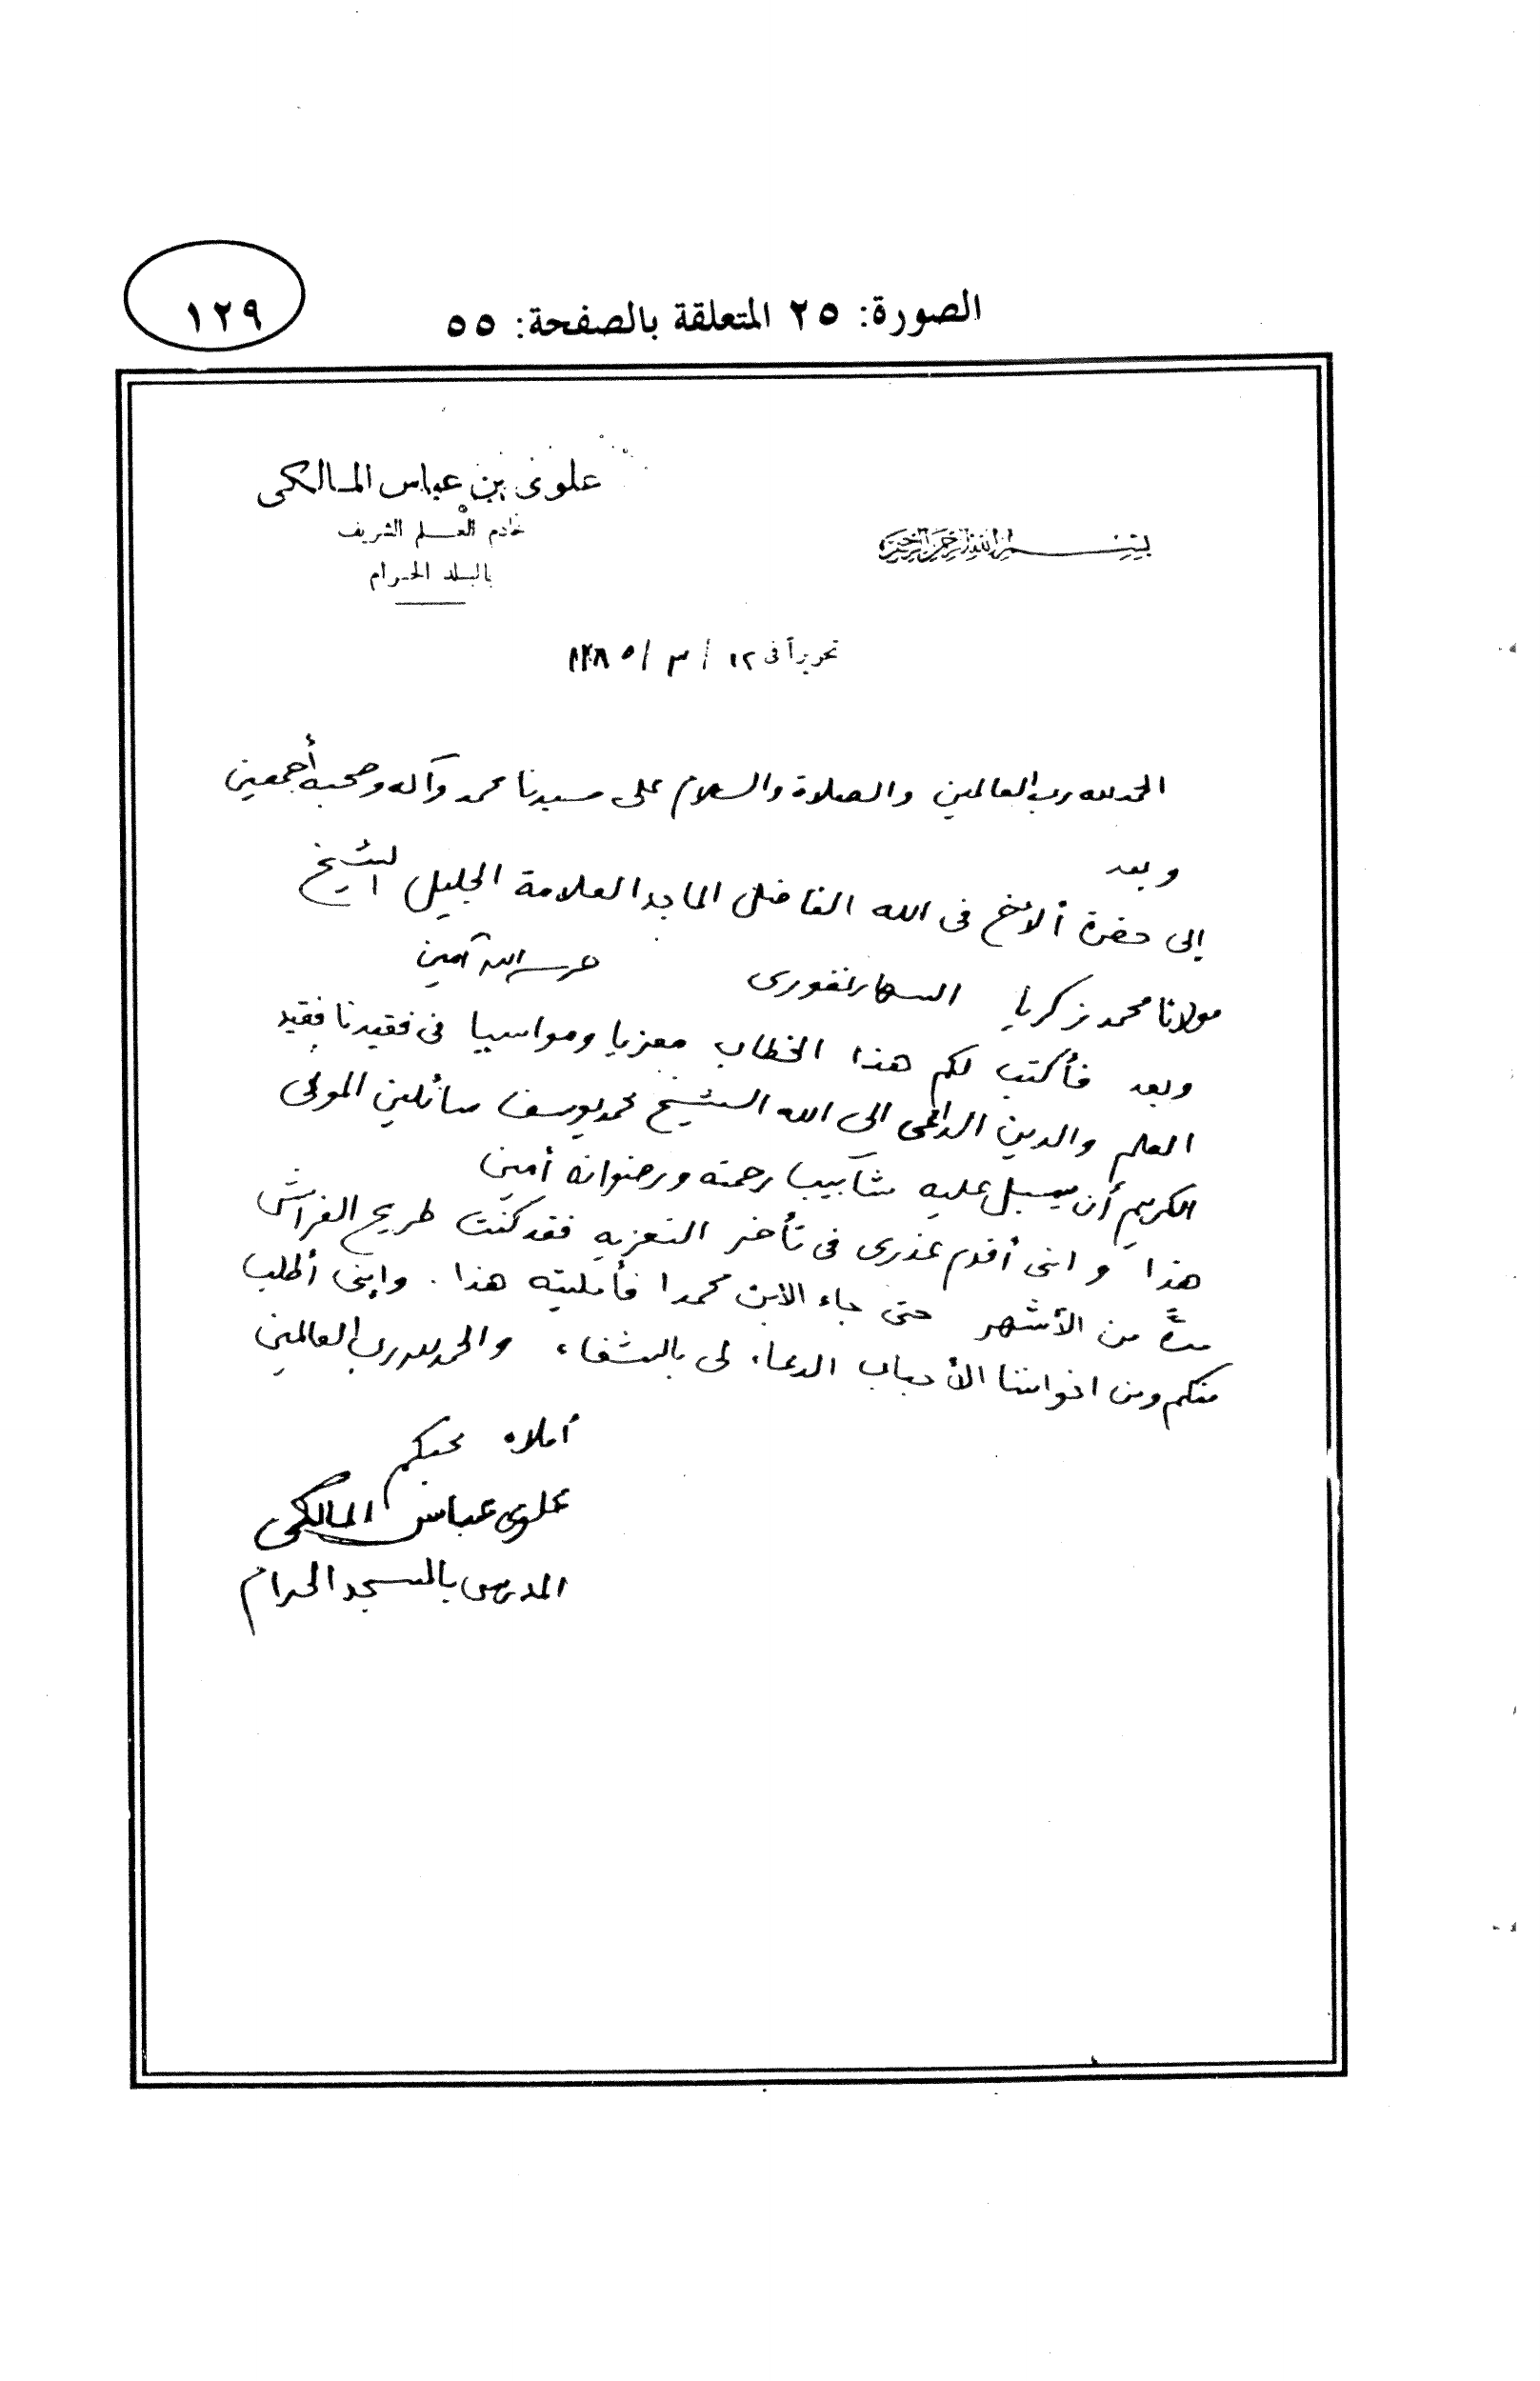 ١٢٩
الصورة: ٢٥ المتعلقة بالصفحة: ٥٥
علوي بن عباس المالكي
خادم العلم الشريف
بالبلد الحرام
بسم الله الرحمن الرحيم
تحريراً في ١٢ / ٣ / ١٣٨٥
الحمد لله رب العالمين والصلاة والسلام على سيدنا محمد وآله وصحبه أجمعين
وبعد
إلى حضرة ألأخ في الله الفاضل الماجد العلامة الجليل الشيخ
مولانا محمد زكريا السهارنفورى حرسه الله آمين
وبعد فأكتب لكم هذا الخطاب معزيا ومواسيا في فقيدنا فقيد
العلم والدين الداعى الى الله الشيخ محمد يوسف سائلين المولى
الكريم أن يسبل عليه شآبيب رحمته ورضوانه أمين
هذا وانى أقدم عذرى فى تأخر التعزيه فقد كنت طريح الفراش
مدةً من الأشهر حتى جاء الابن محمدا فأمليته هذا . وإنى أطلب
منكم ومن اخواننا الأحباب الدعاء لى بالشفاء والحمد لله رب العالمين
أملاه محبكم
علوى عباس المالكى
المدرس بالمسجد الحرام